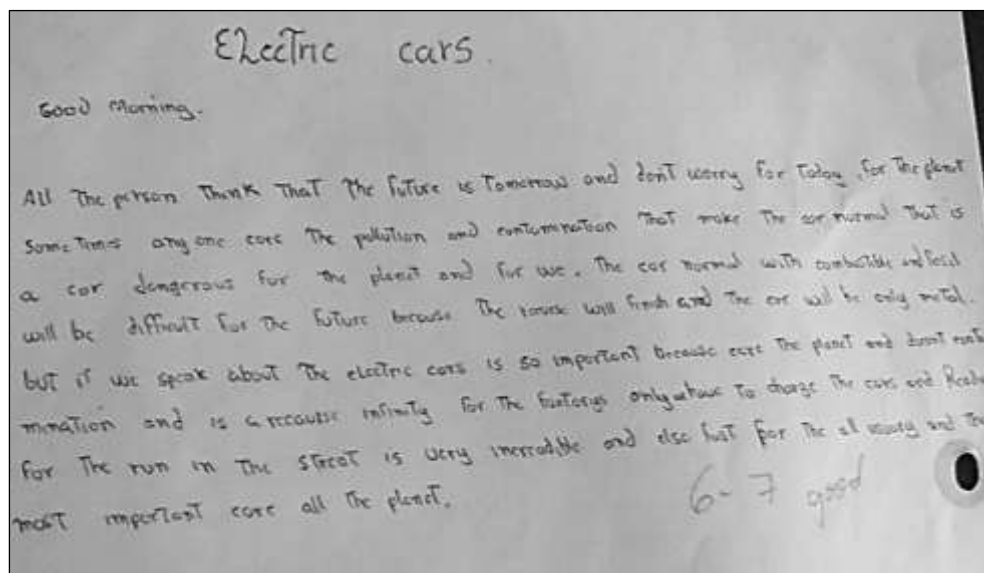 Electric cars.
Good Morning.
All The person Think That The future is Tomorrow and don't worry for Today, for The planet
Some Times any one care The pollution and contamination That make The car normal That is
a car dangerous for The planet and for we. The car normal with combustible and fosil
will be difficult for The future because The will finish and The car will be only metal.
but if we speak about The electric cars is so important because care The planet and
mination and is a recourse infinity for The factorys only have To charge The cars and Ready
for The run in The street is very incredible and else for The al and The
most important care all The planet.
6-7 good